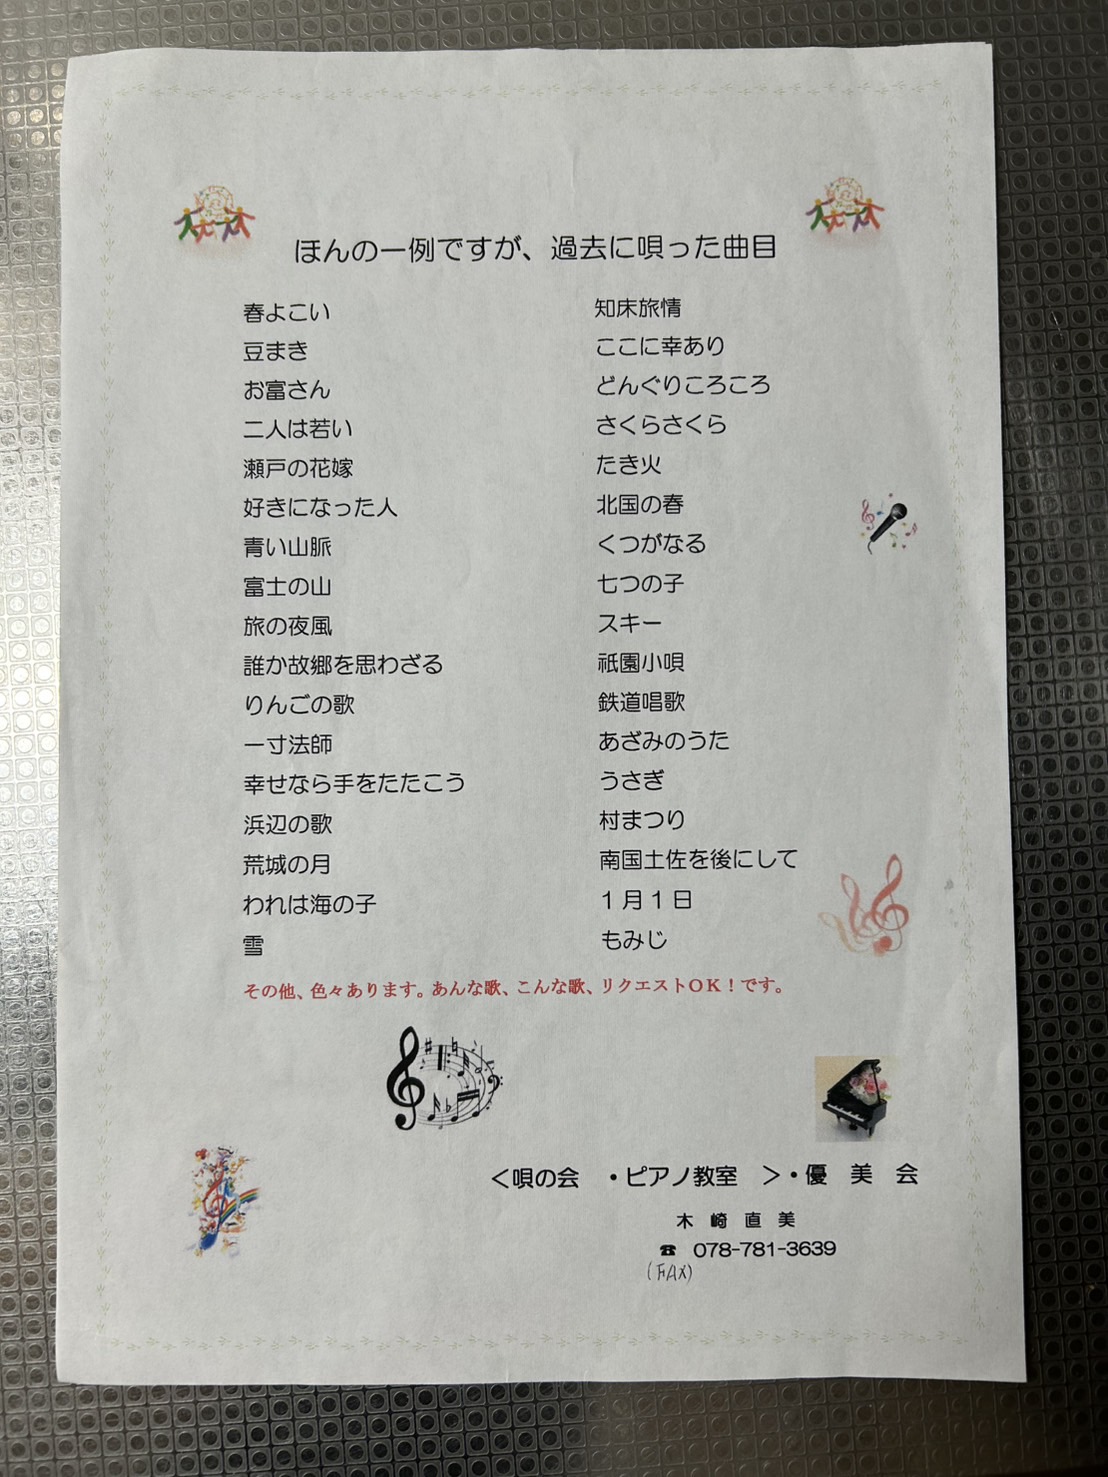 ほんの一例ですが、過去に唄った曲目
春よこい
豆まき
お富さん
二人は若い
瀬戸の花嫁
好きになった人
青い山脈
富士の山
旅の夜風
誰か故郷を思わざる
りんごの歌
一寸法師
幸せなら手をたたこう
浜辺の歌
荒城の月
われは海の子
雪
知床旅情
ここに幸あり
どんぐりころころ
さくらさくら
たき火
北国の春
くつがなる
七つの子
スキー
祇園小唄
鉄道唱歌
あざみのうた
うさぎ
村まつり
南国土佐を後にして
1月1日
もみじ
その他、色々あります。あんな歌、こんな歌、リクエストOK！です。
＜唄の会 ・ピアノ教室 ＞・優 美 会
木 崎 直 美
☎ 078-781-3639
(FAX)